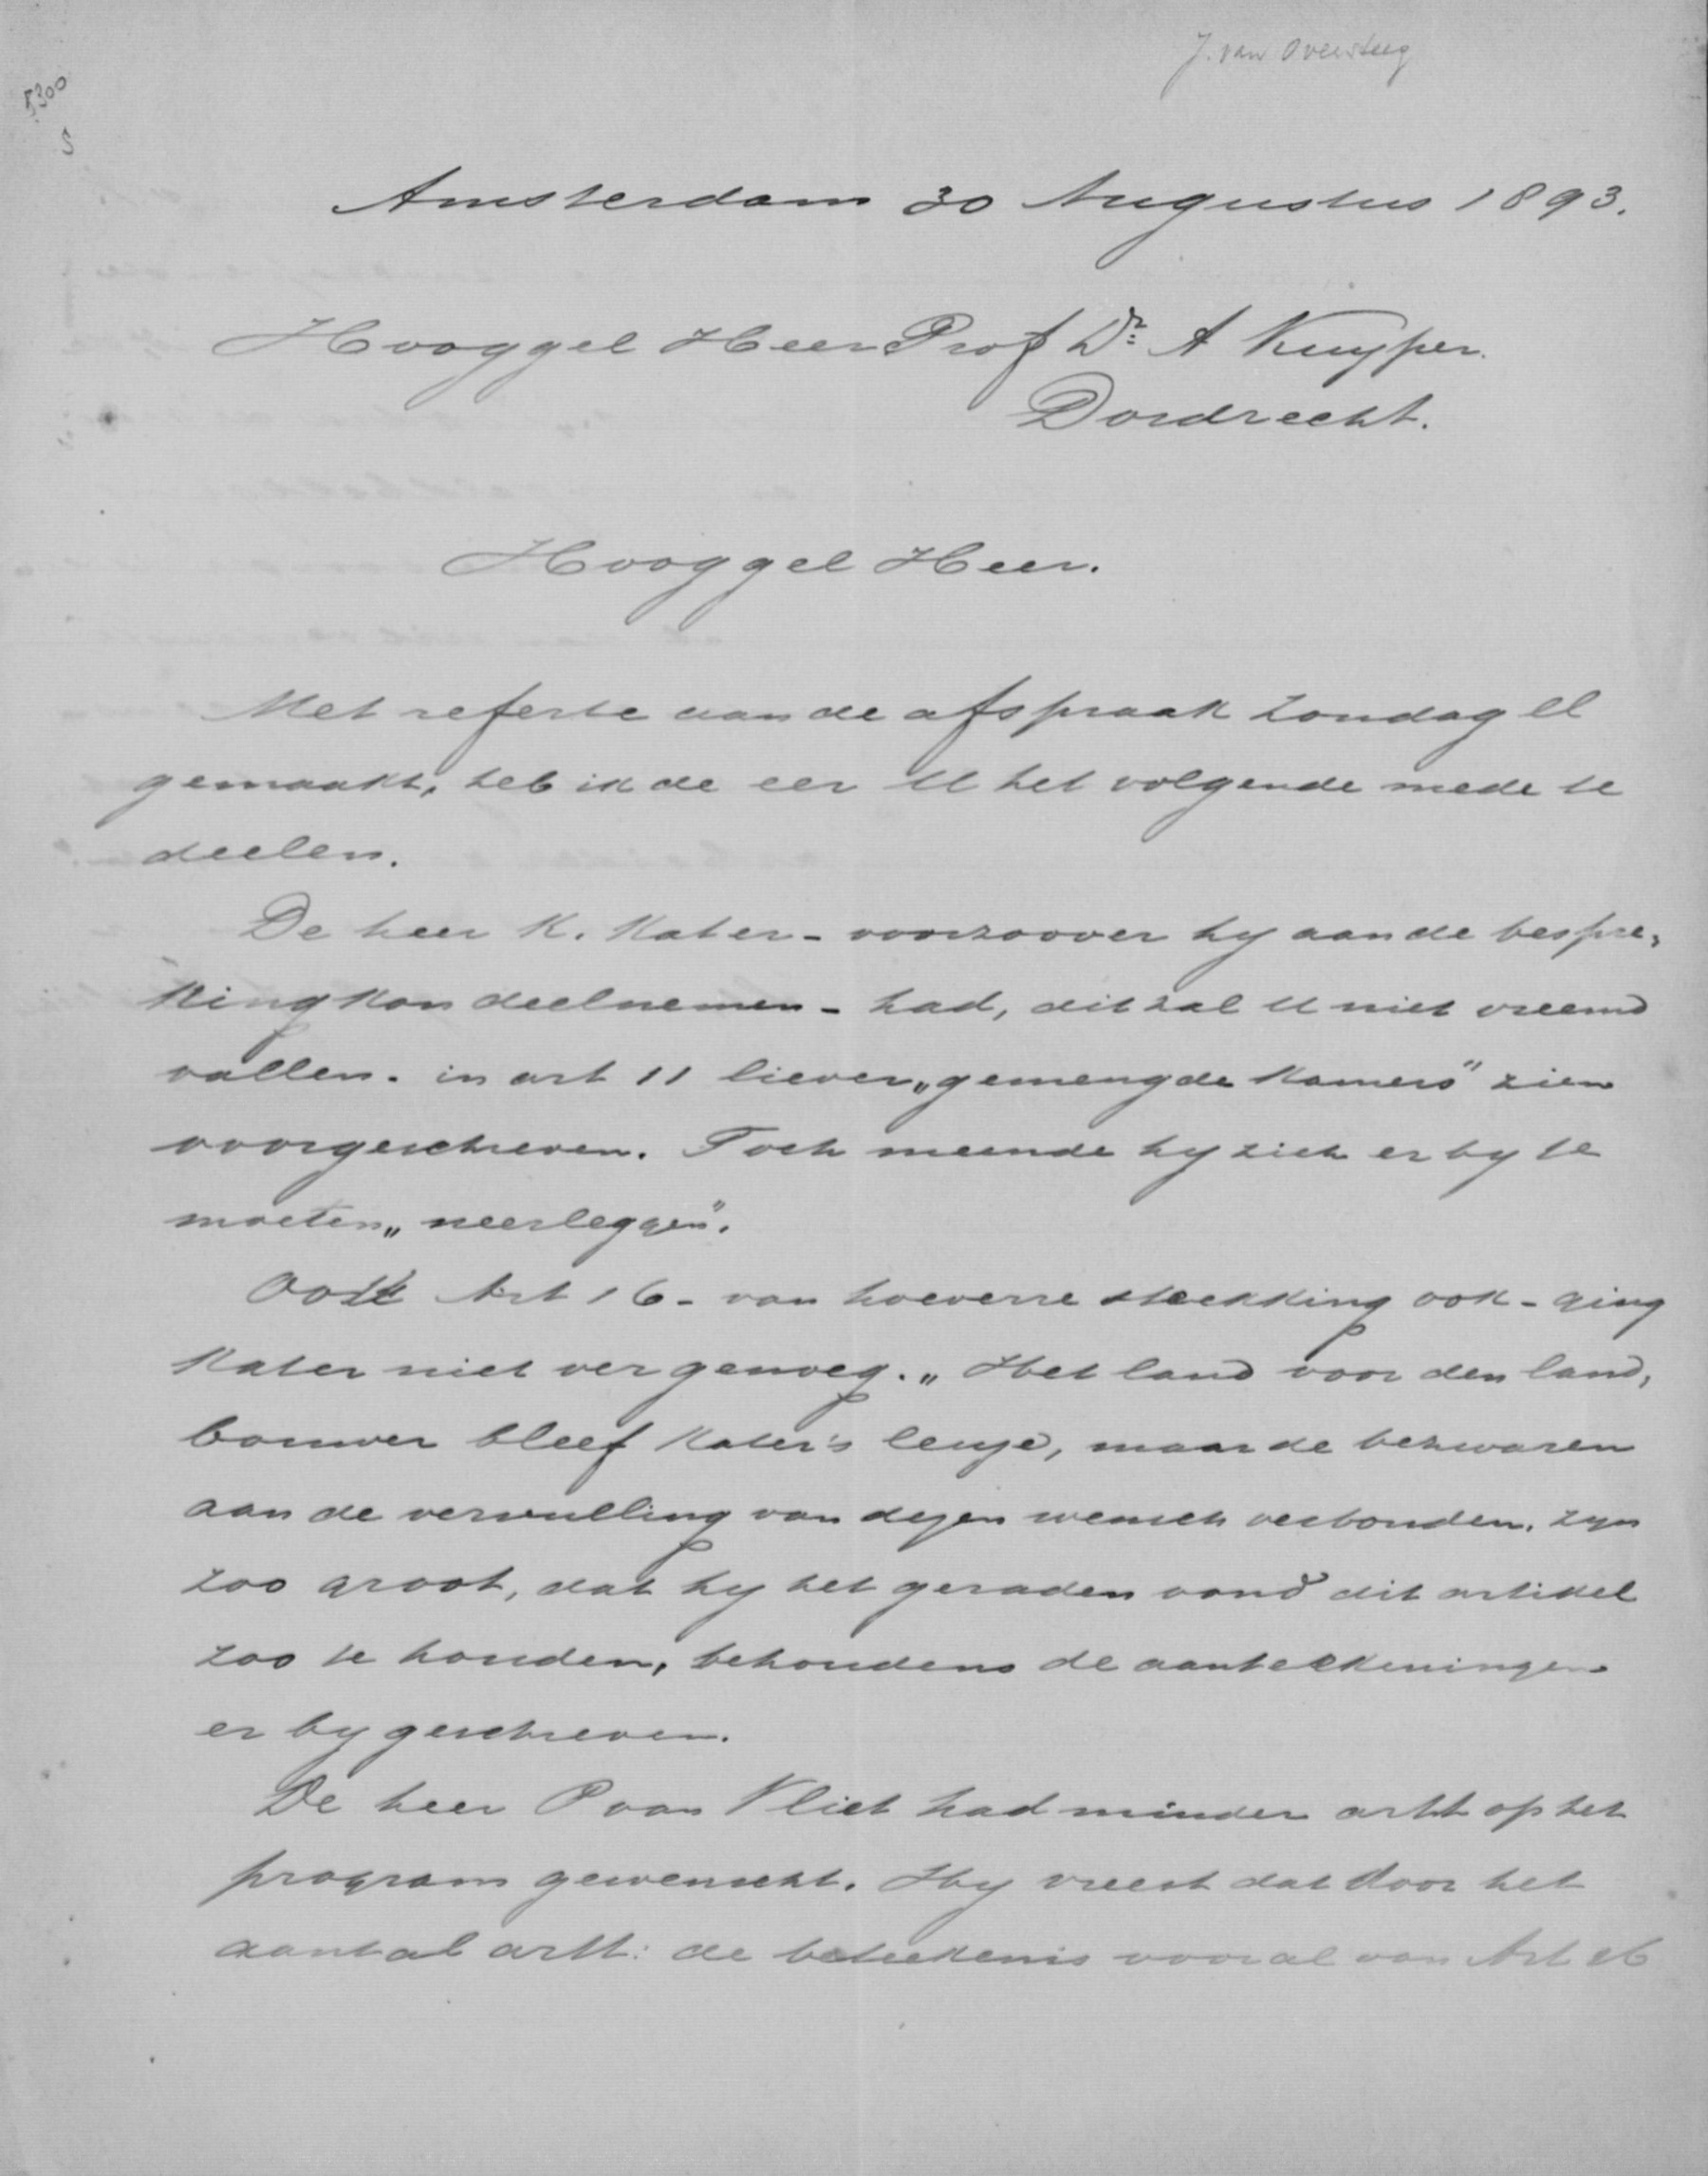 J. van Oversteeg
5300
S
Amsterdam 30 Augustus 1893.
Hooggel Heer Prof Dr: A Kuyper.
Dordrecht.
Hooggel Heer.
Met referte aan de afspraak Zondag ll
gemaakt, heb ik de eer U het volgende mede te
deelen.
De heer K. Kater - voorzoover hy aan de bespre„
king kon deelnemen - had, dit zal U niet vreemd
vallen. in art 11 liever „gemengde Kamers" zien
voorgeschreven. Toch meende hy zich er by te
moeten „neerleggen".
Art 16 - van hoeverre strekking ook - ging
Kater niet ver genoeg. „Het land voor den land„
bouwer bleef Kater's leuze, maar de bezwaren
aan de vervulling van dezen wensch verbonden. zyn
zoo groot, dat hy het geraden vond dit artikel
zoo te houden, behoudens de aanteekeningen
er by geschreven.
De heer P van Vliet had minder artt op het
program gewenscht. Hy vreest dat door het
aantal artt: de beteekenis vooral van Art 16